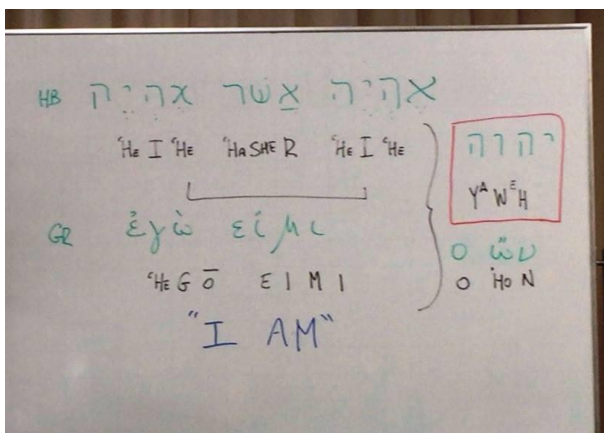 HB אֶהְיֶה אֲשֶׁר אֶהְיֶה
ʿHE I ʿHE ʿHASHER ʿHE I ʿHE
GR ἐγὼ εἰμι
ʿHE G Ō E I M I
"I AM"
יהוה
YᴬWᴱH
ο ὤν
O ʿHO N